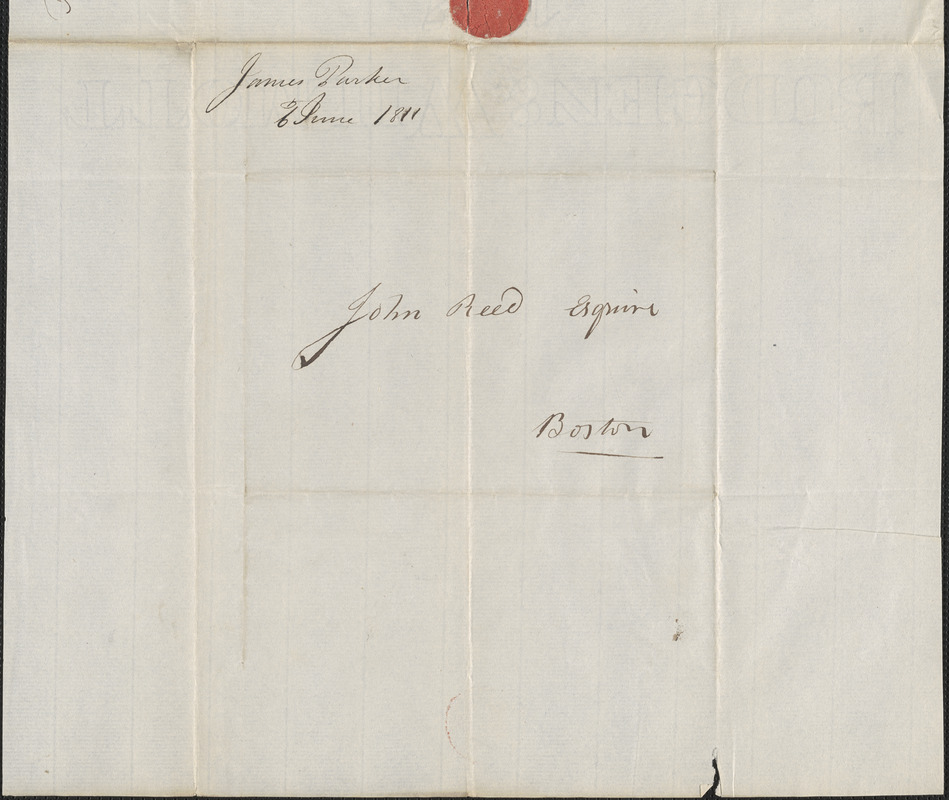 James Parker
6 June 1811
John Reed Esquire
Boston